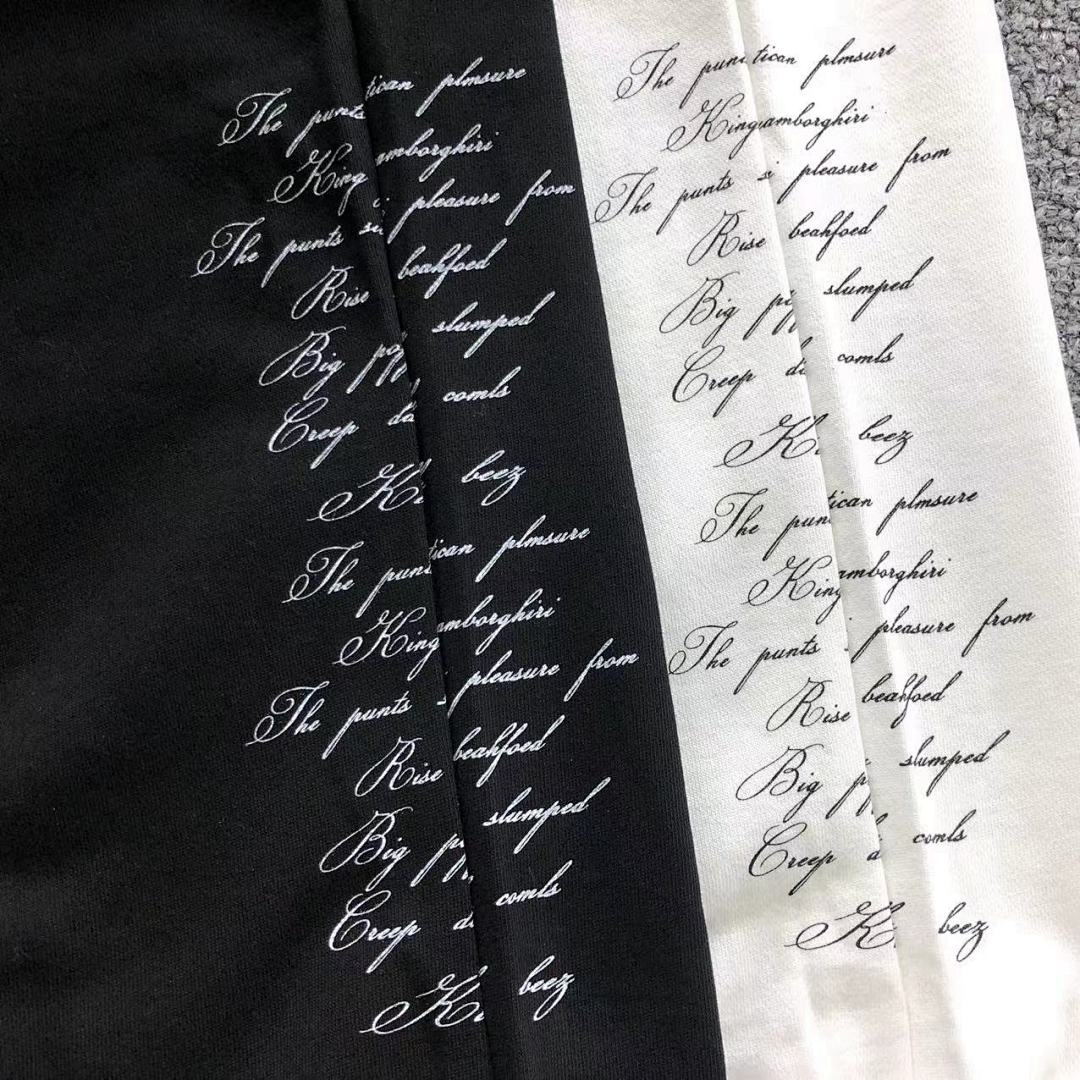 The punts tican plmsure
King amborghiri
The punts pleasure from
Rise beahfoed
Big slumped
Creep comls
beez
The punt ican plmsure
King amborghiri
The punts pleasure from
Rise beahfoed
Big slumped
Creep comls
beez
The pun tican plmsure
King amborghiri
The punts pleasure from
Rise beahfoed
Big slumped
Creep comls
beez
The pun tican plmsure
King amborghiri
The punts pleasure from
Rise beahfoed
Big slumped
Creep comls
beez